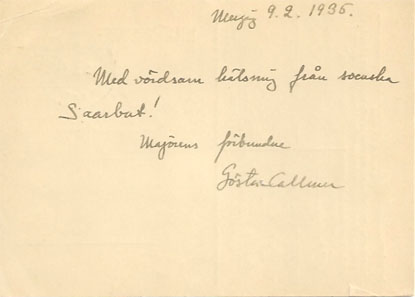 Merzig 9.2.1935.
Med vördsam hälsning från svenska
Saarbat!
Majorens förbundne
Gösta Callmer